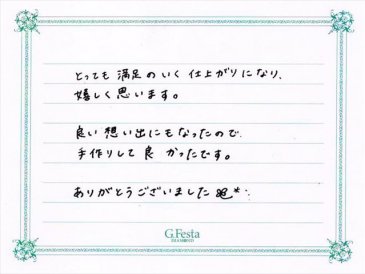 とっても 満足のいく 仕上がりになり、
嬉しく思います。
良い 想い出にもなったので
手作りして 良 かったです。
ありがとうございました
G.Festa
DIAMOND